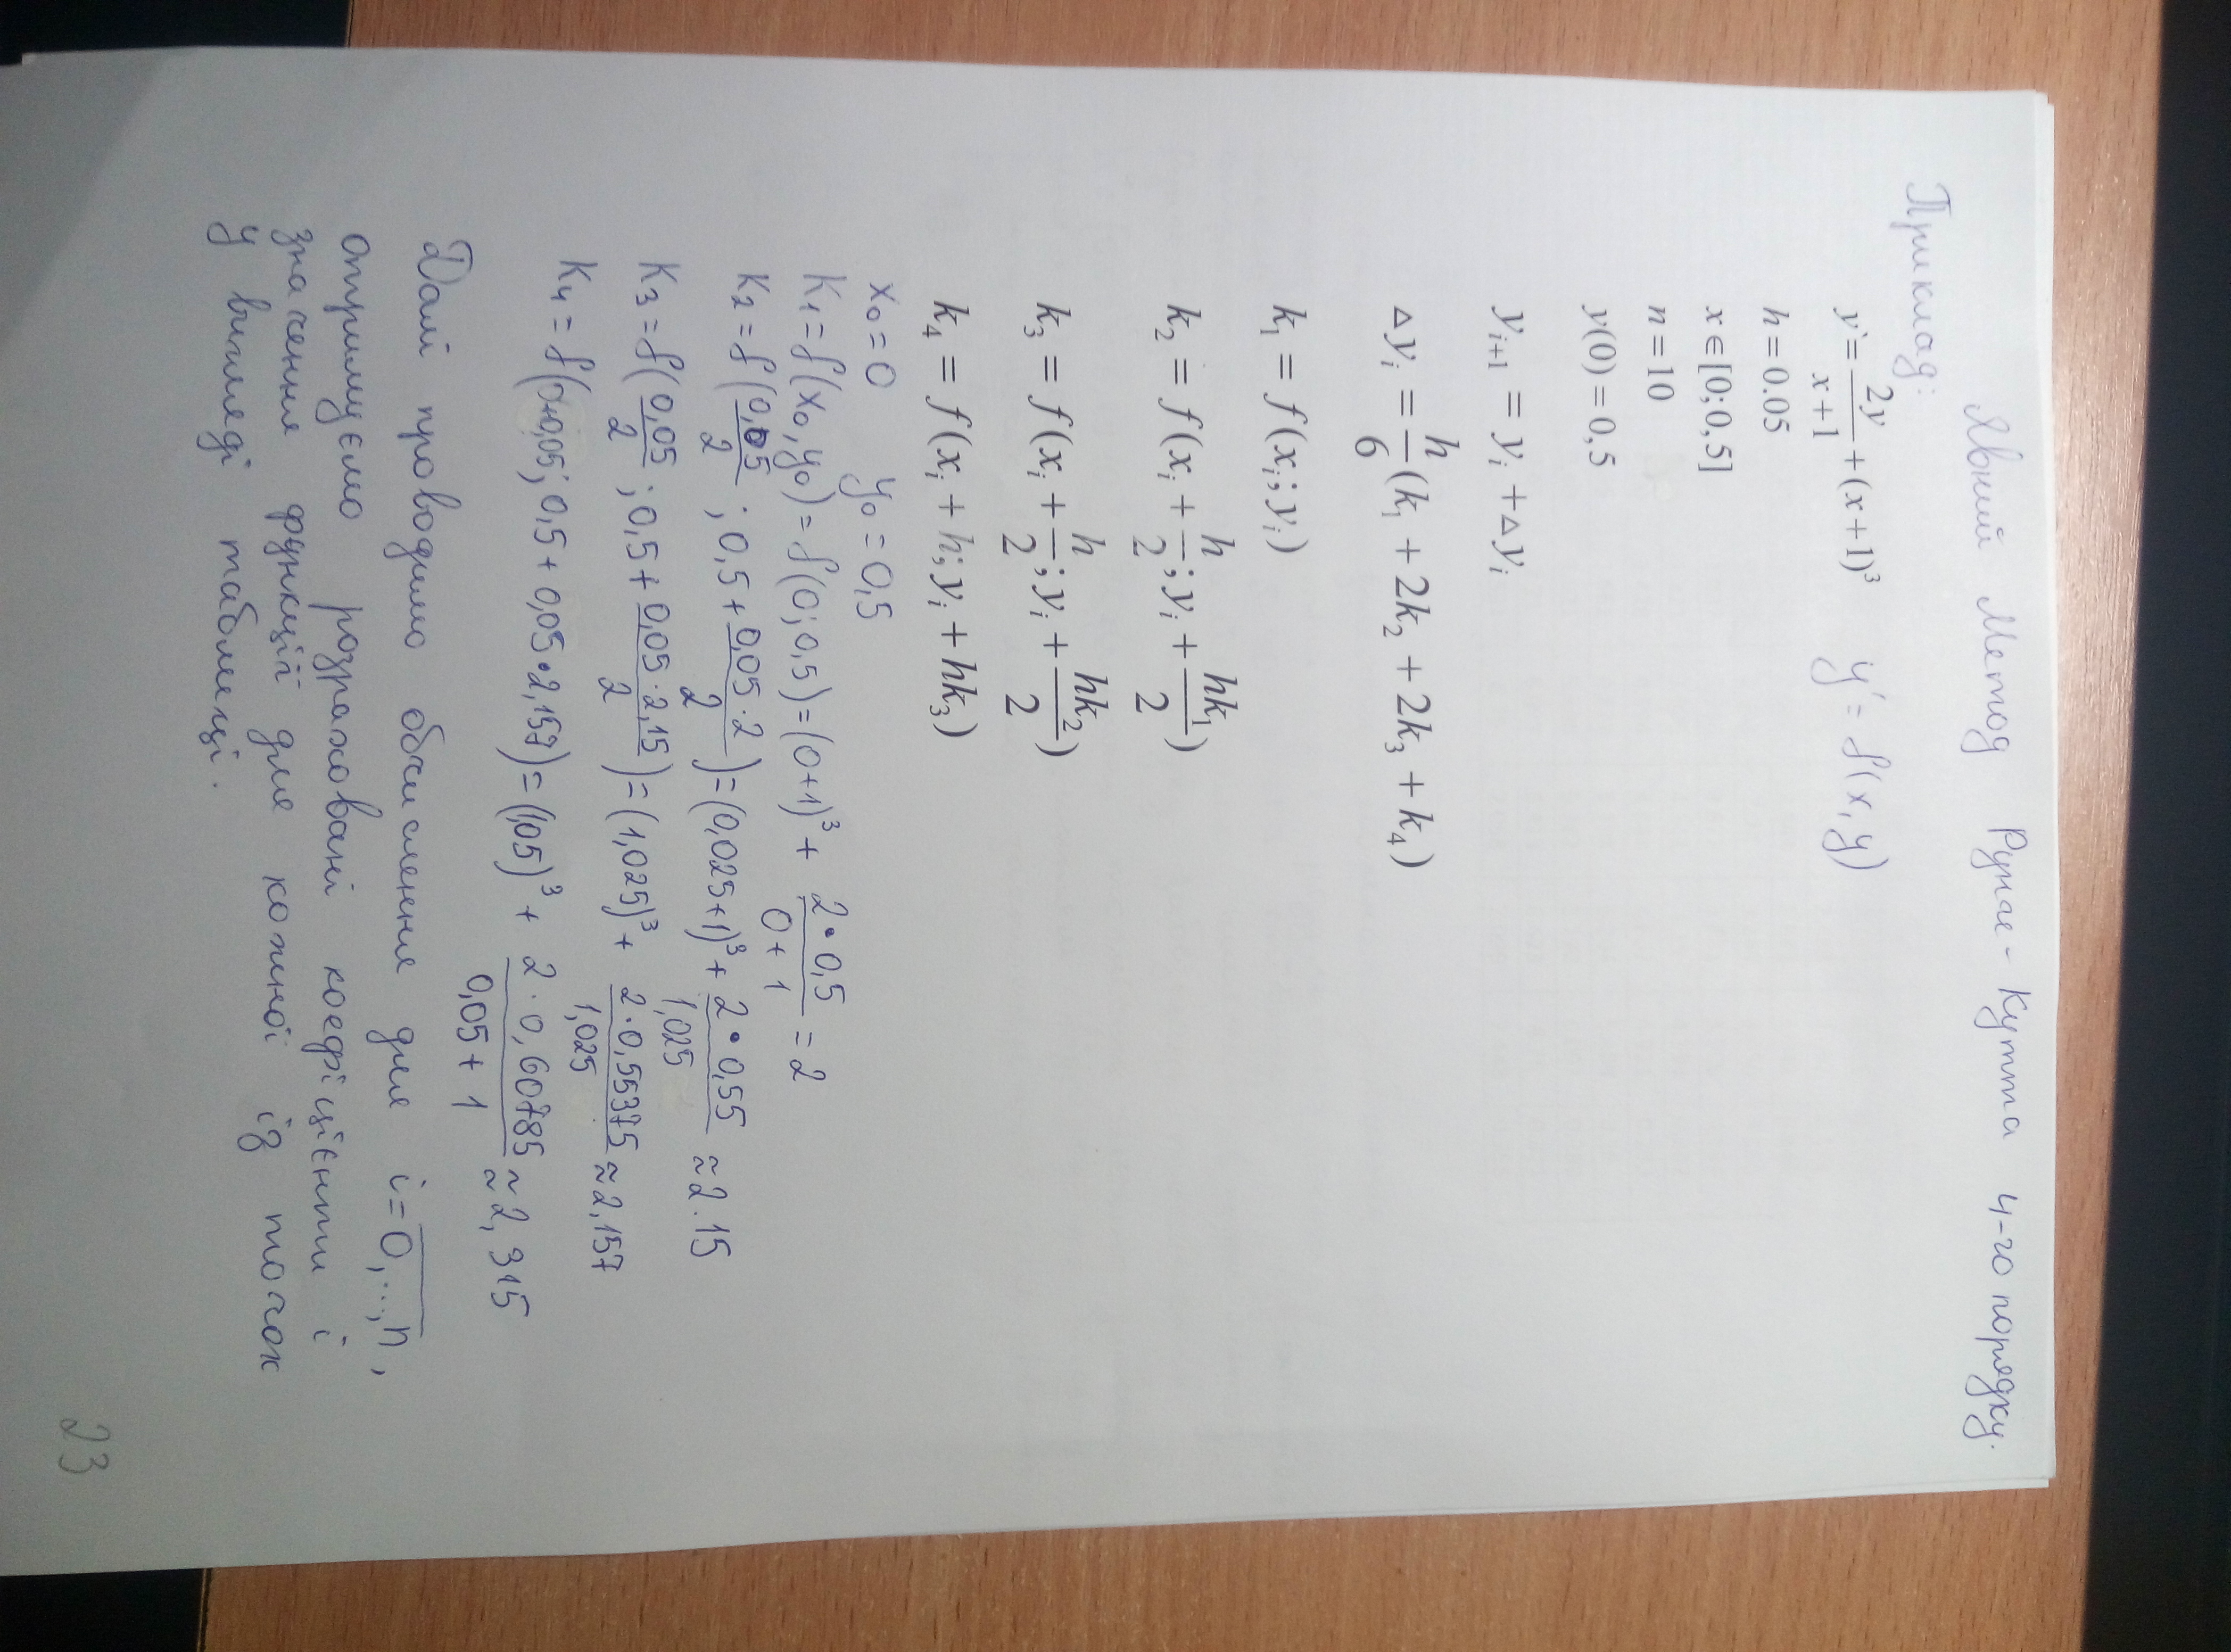 Явний Метод Рунге-Кутта 4-го порядку.
Приклад:
y`= 2y/(x+1) + (x+1)³ y′= f(x, y)
h = 0.05
x ∈ [0; 0,5]
n = 10
y(0) = 0,5
yᵢ₊₁ = yᵢ + △yᵢ
△yᵢ = h/6 (k₁ + 2k₂ + 2k₃ + k₄)
k₁ = f(xᵢ; yᵢ)
k₂ = f(xᵢ + h/2; yᵢ + hk₁/2)
k₃ = f(xᵢ + h/2; yᵢ + hk₂/2)
k₄ = f(xᵢ + h; yᵢ + hk₃)
x₀ = 0 y₀ = 0,5
K₁ = f(x₀, y₀) = f(0; 0,5) = (0+1)³ + (2·0,5)/(0+1) = 2
K₂ = f(0,05/2; 0,5 + (0,05·2)/2) = (0,025+1)³ + (2·0,55)/1,025 ≈ 2.15
K₃ = f(0,05/2; 0,5 + (0,05·2,15)/2) = (1,025)³ + (2·0,55375)/1,025 ≈ 2,157
K₄ = f(0+0,05; 0,5 + 0,05·2,157) = (1,05)³ + (2·0,60785)/(0,05+1) ≈ 2,315
Далі проводимо обчислення для i = 0,...,n,
отримуємо розраховані коефіцієнти і
значення функції для кожної із точок
у вигляді таблиці.
23